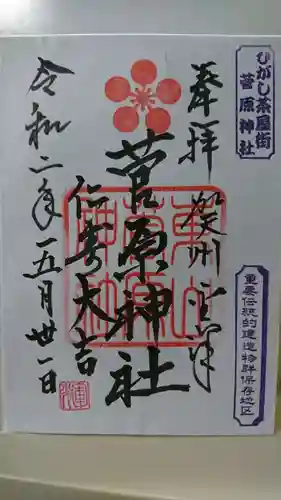 ひがし茶屋街
菅原神社
重要伝統的建造物群保存地区
奉拝
加賀
菅原神社
仁寿大吉
令和二年五月卅一日